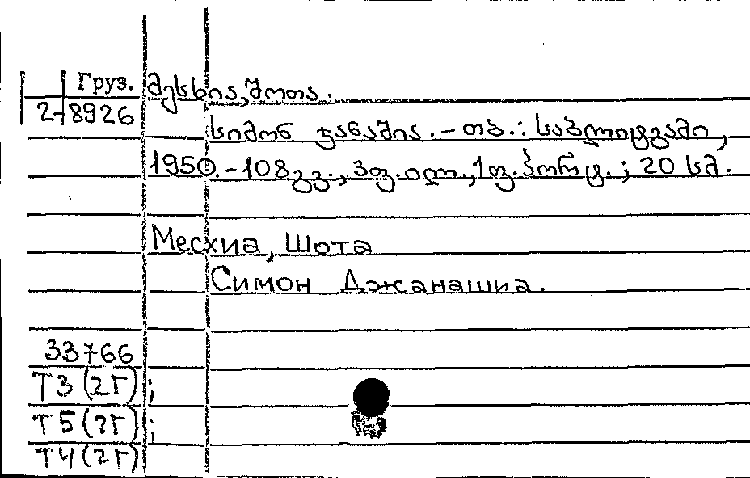 Груз. მესხია, შოთა.
2-8926
სიმონ ჯანაშია. - თბ.: საბლიტგამი,
1950. - 108 გვ., 3 ფ. ილ., 1 ფ. პორტ.; 20 სმ.
Месхиа, Шота
Симон Джанашиа.
33766
Т3 (2г);
Т5 (2г);
Т4 (2г)